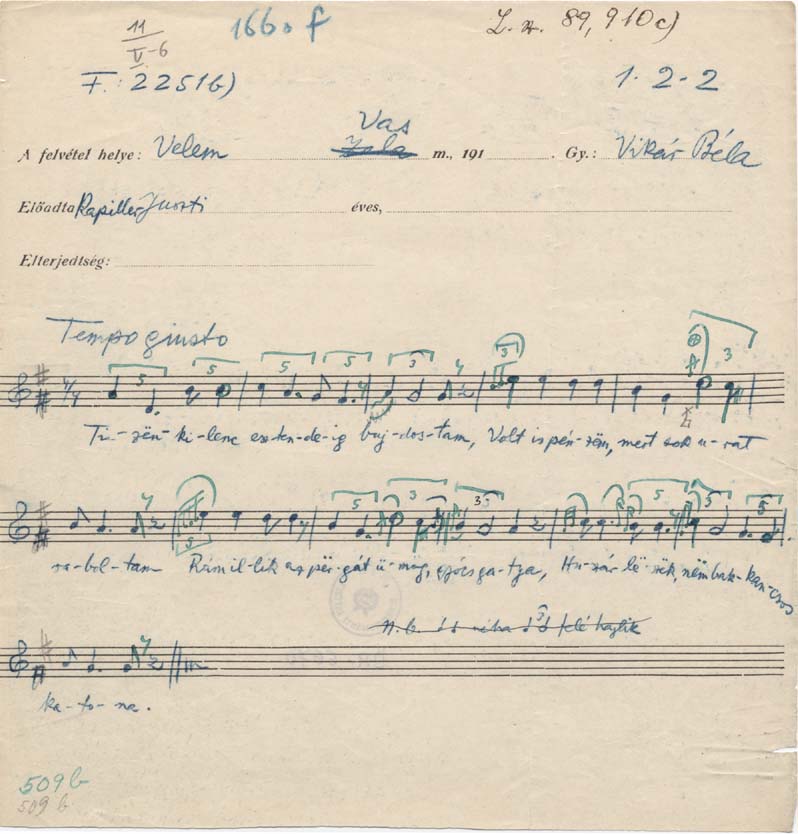 11
V-6
166o f
L. sz. 89,910c)
F.: 2251b)
1-2-2
Vas
A felvétel helye: Velem Zala m., 191 . Gy.: Vikár Béla
Előadta Kapiller Juszti éves,
Elterjedtség:
Tempo giusto
5 5 5 5 3 3 3
4/4
Ti-zën-ki-lenc eszten-de-ig buj-dos-tam, Volt is pén-zëm, mert sok u-rat
5 3 3 5 3
ra-bol-tam Rámil-lik az përgát ü-mög, szócs ga-tya, Hu-szár lë-szëk, nëm bak-kan-csos
N.b. néha felé hajlik
ka-to-na.
509 b
509 b